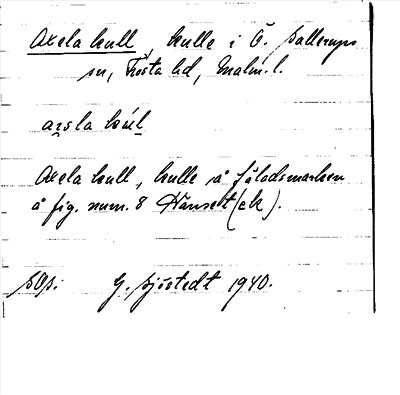 Axela kull, kulle i Ö. Sallerups
sn, Frosta hd, Malm. l.
Axela kull, kulle på fäladsmarken
å fig. num. 8 Hänset (ek).
SOp. G. Sjöstedt 1940.